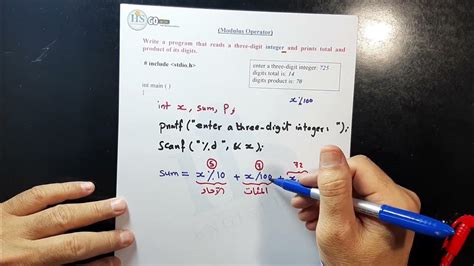 HS
GO
(Modulus Operator)
Write a program that reads a three-digit integer and prints total and
product of its digits.
# include <stdio.h>
enter a three-digit integer: 725
digits total is: 14
digits product is: 70
int main ( )
{
x%100
int x, sum, P;
printf ("enter a three-digit integer: ");
Scanf ("%d", &x);
5 7 72
Sum = x%10 + x/100 + x
الآحاد المئات